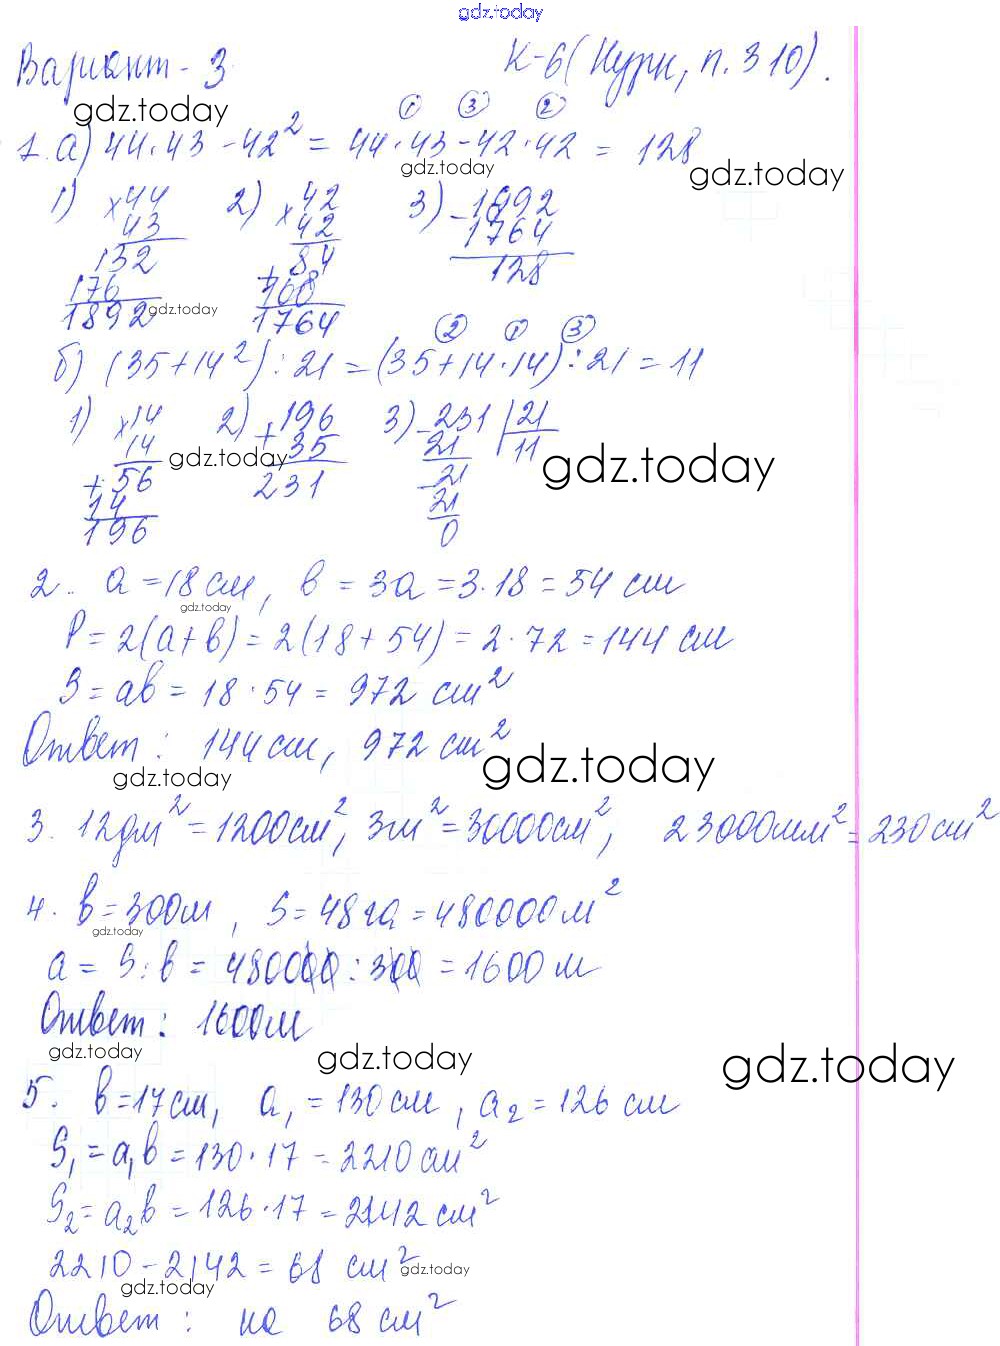 gdz.today
Вариант - 3 К-6 (Нурк, п. 310).
gdz.today
① ③ ②
1. а) 44·43 - 42² = 44·43 - 42·42 = 128
gdz.today gdz.today
1) ×44 2) ×42 3) -1892
43 42 1764
132 +84 128
176 168
1892 gdz.today 1764
② ① ③
б) (35+14²) : 21 = (35+14·14) : 21 = 11
1) ×14 2) +196 3) -231 | 21
14 35 21 11
gdz.today gdz.today
+56 231 -21
14 21
196 0
2. a = 18 см, b = 3a = 3·18 = 54 см
gdz.today
P = 2(a+b) = 2(18+54) = 2·72 = 144 см
S = ab = 18·54 = 972 см²
Ответ: 144 см, 972 см²
gdz.today gdz.today
3. 12дм² = 1200см², 3м² = 30000см², 23000мм² = 230см²
4. b = 300м, S = 48га = 480000м²
gdz.today
a = S:b = 480000:300 = 1600м
Ответ: 1600м
gdz.today gdz.today gdz.today
5. b = 17см, a₁ = 130см, a₂ = 126 см
S₁ = a₁b = 130·17 = 2210см²
S₂ = a₂b = 126·17 = 2142 см²
2210 - 2142 = 68 см²
gdz.today gdz.today
Ответ: на 68 см²